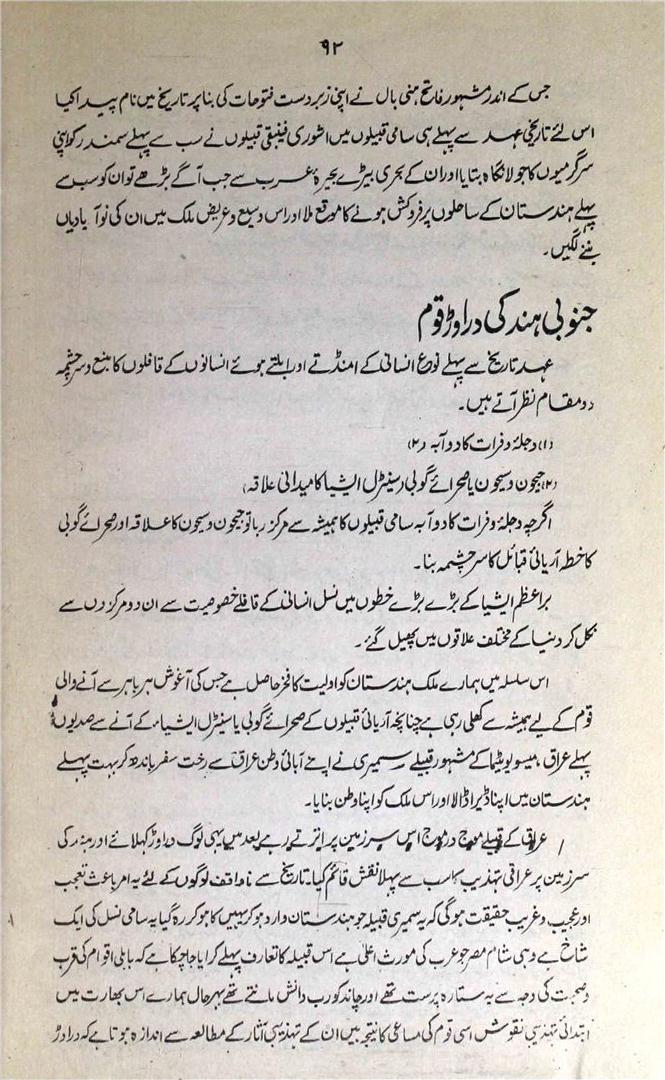 ۹۲
جس کے اندر مشہور فاتح ہنی بال نے اپنی زبردست فتوحات کی بنا پر تاریخ میں نام پیدا کیا
اس لئے تاریخی عہد سے پہلے ہی سامی قبیلوں میں اشوری فینیقی قبیلوں نے سب سے پہلے سمندر کو اپنی
سرگرمیوں کا جولانگاہ بتایا اور ان کے بحری بیڑے بحیرۂ عرب سے جب آگے بڑھے تو ان کو سب سے
پہلے ہندستان کے ساحلوں پر فروکش ہونے کا موقع ملا اور اس وسیع و عریض ملک میں ان کی نو آبادیاں
بننے لگیں۔
جنوبی ہند کی دراوڑ قوم
عہد تاریخ سے پہلے نوع انسانی کے امنڈتے اور ابلتے ہوئے انسانوں کے قافلوں کا منبع و سرچشمہ
دو مقام نظر آتے ہیں۔
(۱) دجلہ و فرات کا دوآبہ (۲)
(۲) جیحون و سیحون یا صحرائے گوبی (سینٹرل ایشیا کا میدانی علاقہ)
اگرچہ دجلہ و فرات کا دوآبہ سامی قبیلوں کا ہمیشہ سے مرکز رہا تو جیحون و سیحون کا علاقہ اور صحرائے گوبی
کا خطہ آریائی قبائل کا سرچشمہ بنا۔
براعظم ایشیا کے بڑے بڑے خطوں میں نسل انسانی کے قافلے خصوصیت سے ان دو مرکزوں سے
نکل کر دنیا کے مختلف علاقوں میں پھیل گئے۔
اس سلسلہ میں ہمارے ملک ہندستان کو اولیت کا فخر حاصل ہے جس کی آغوش ہر باہر سے آنے والی
قوم کے لیے ہمیشہ سے کھلی رہی ہے چنانچہ آریائی قبیلوں کے صحرائے گوبی یا سینٹرل ایشیاء کے آنے سے صدیوں
پہلے عراق، میسوپوٹیما کے مشہور قبیلے سمیری نے اپنے آبائی وطن عراق سے رخت سفر باندھ کر بہت پہلے
ہندستان میں اپنا ڈیرا ڈالا اور اس ملک کو اپنا وطن بنایا۔
عراق کے قبیلے موج در موج اس سرزمین پر اترتے رہے بعد میں یہی لوگ دراوڑ کہلائے اور ہند کی
سرزمین پر عراقی تہذیب کا سب سے پہلا نقش قائم کیا۔ تاریخ سے ناواقف لوگوں کے لئے یہ امر باعث تعجب
اور عجیب و غریب حقیقت ہوگی کہ یہ سمیری قبیلہ جو ہندستان وارد ہو کر یہیں کا ہو کر رہ گیا یہ سامی نسل کی ایک
شاخ ہے وہی شام مصر جو عرب کی مورث اعلیٰ ہے اس قبیلہ کا تعارف پہلے کرایا جا چکا ہے کہ بابلی اقوام کی قرب
و صحبت کی وجہ سے یہ ستارہ پرست تھے اور چاند کو رب دانش مانتے تھے بہرحال ہمارے اس بھارت میں
ابتدائی تہذیبی نقوش اسی قوم کی مساعی کا نتیجہ ہیں ان کے تہذیبی آثار کے مطالعہ سے اندازہ ہوتا ہے کہ دراوڑ